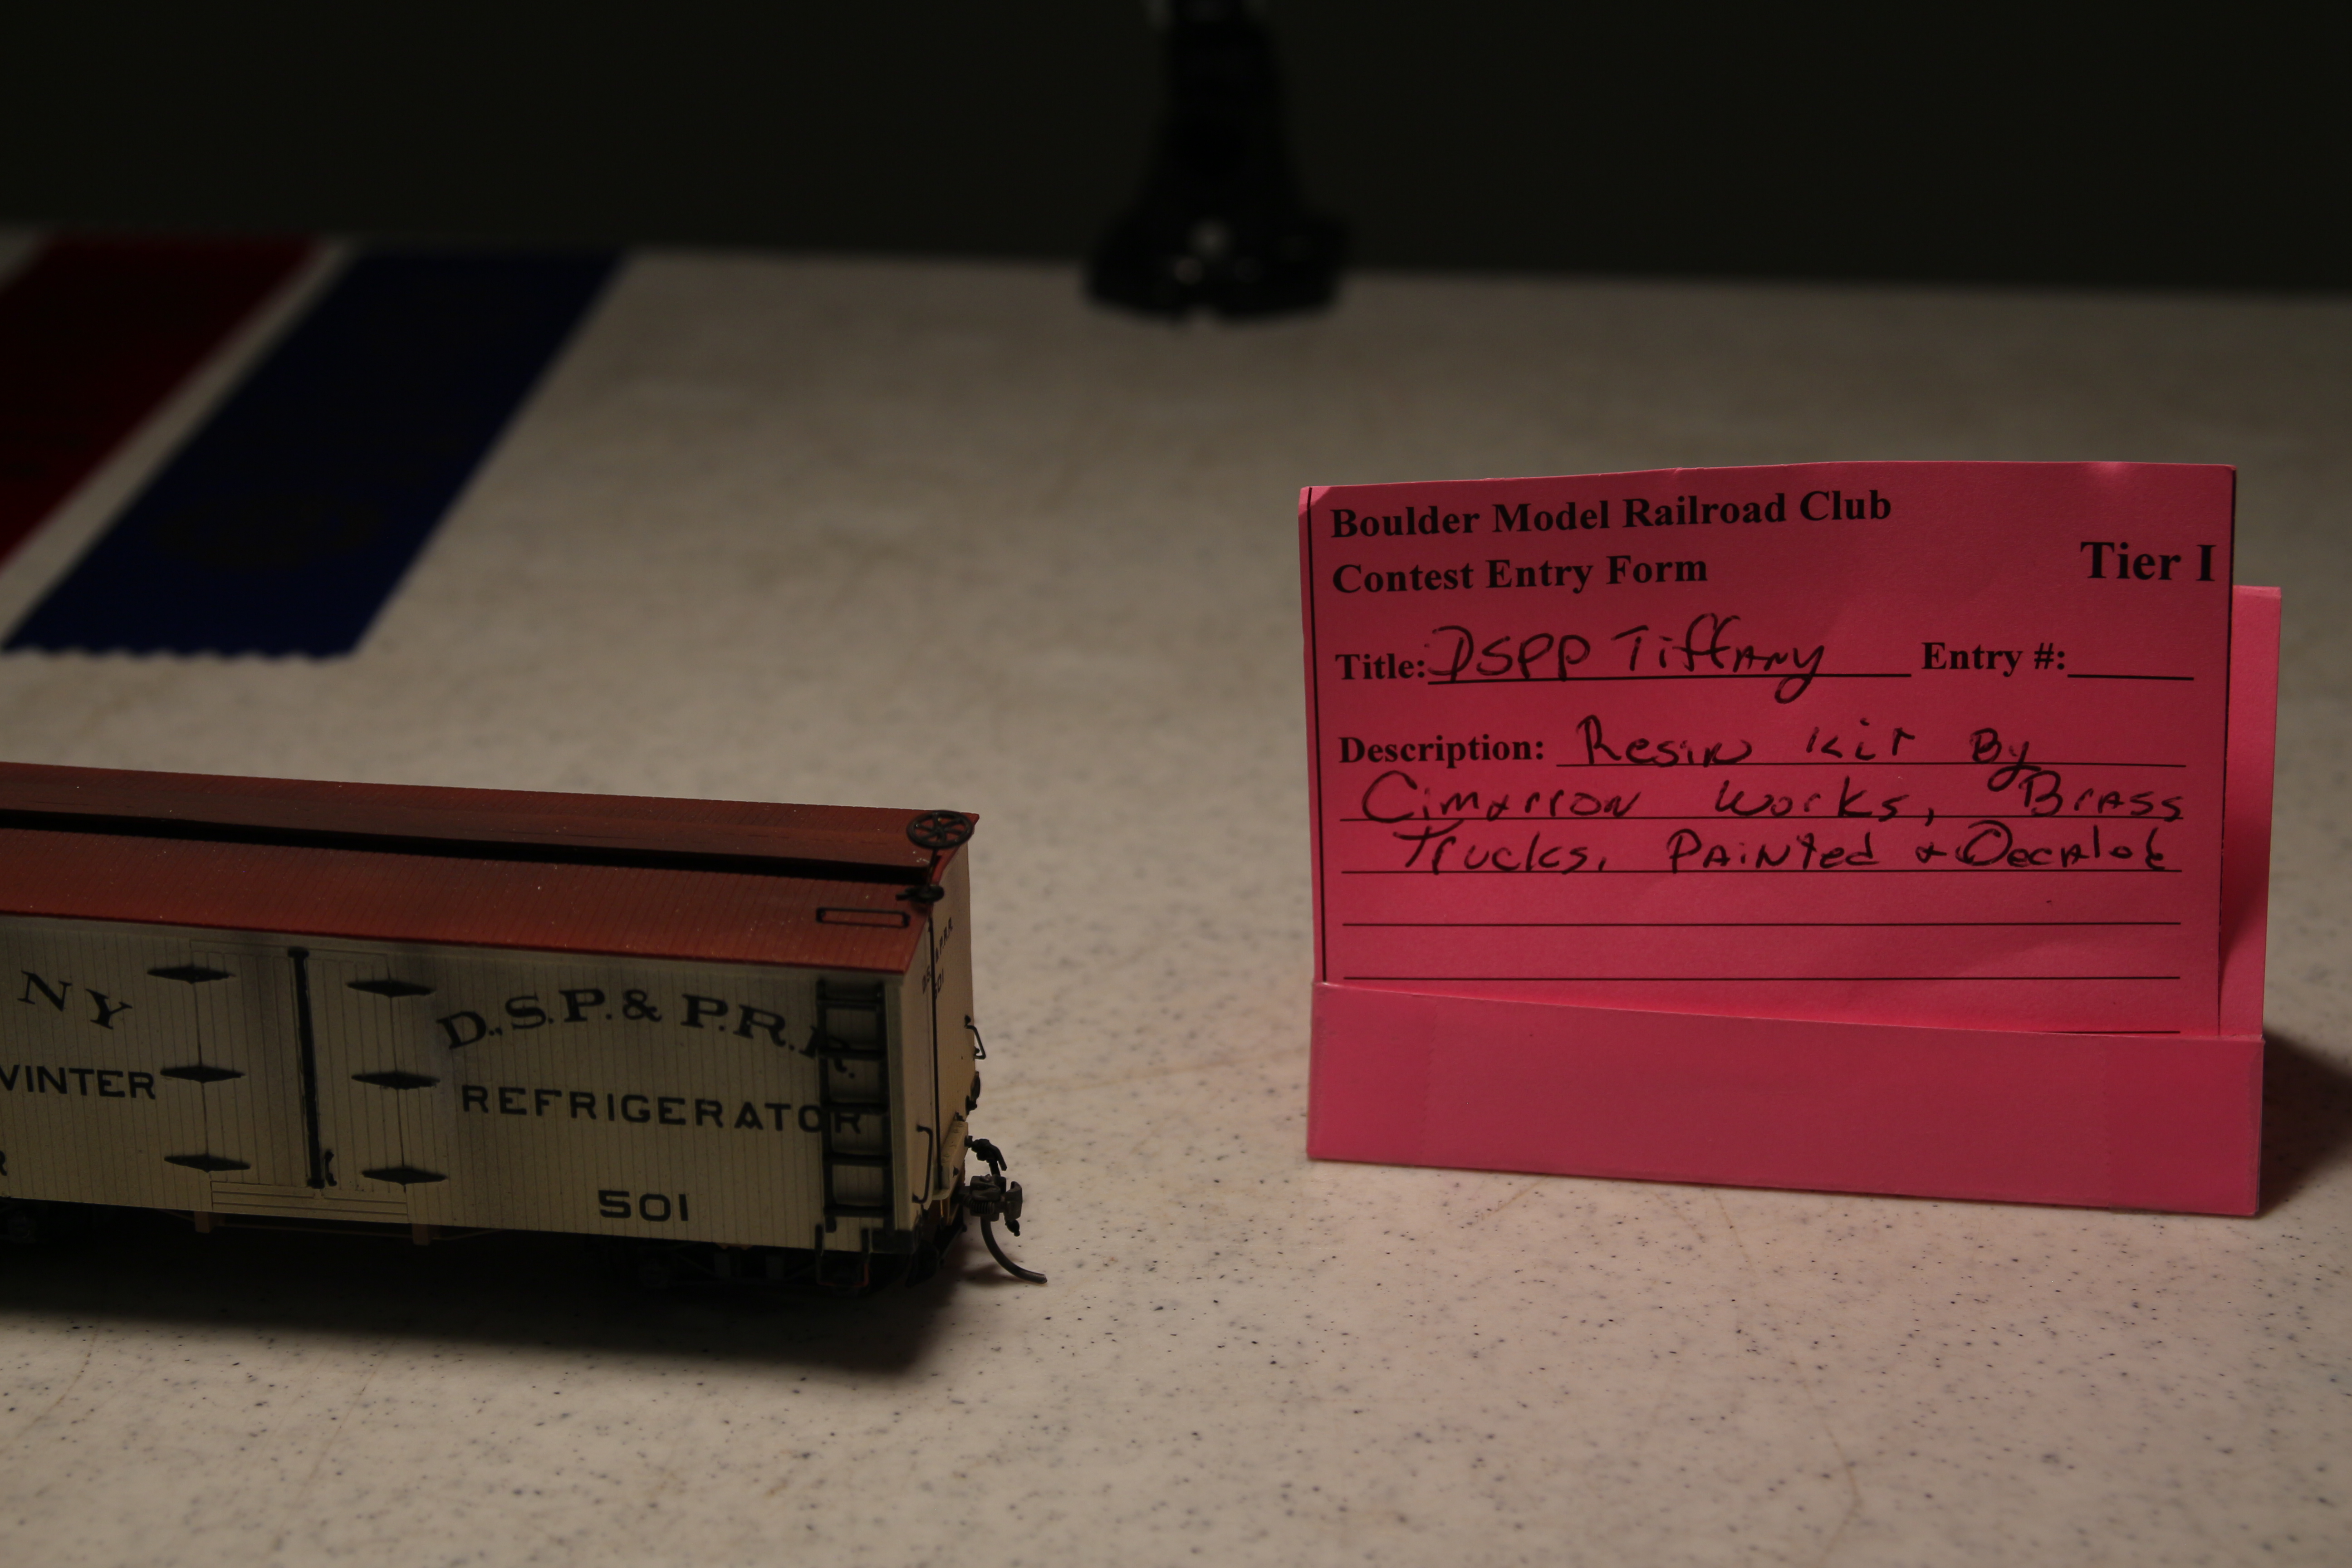 Boulder Model Railroad Club
Contest Entry Form
Tier I
Title: DSPP Tiffany Entry #:
Description: Resin Kit By
Cimarron Works, Brass
Trucks, Painted &
NY
D.,S.P.& P.R.R.
WINTER
REFRIGERATOR
R
501